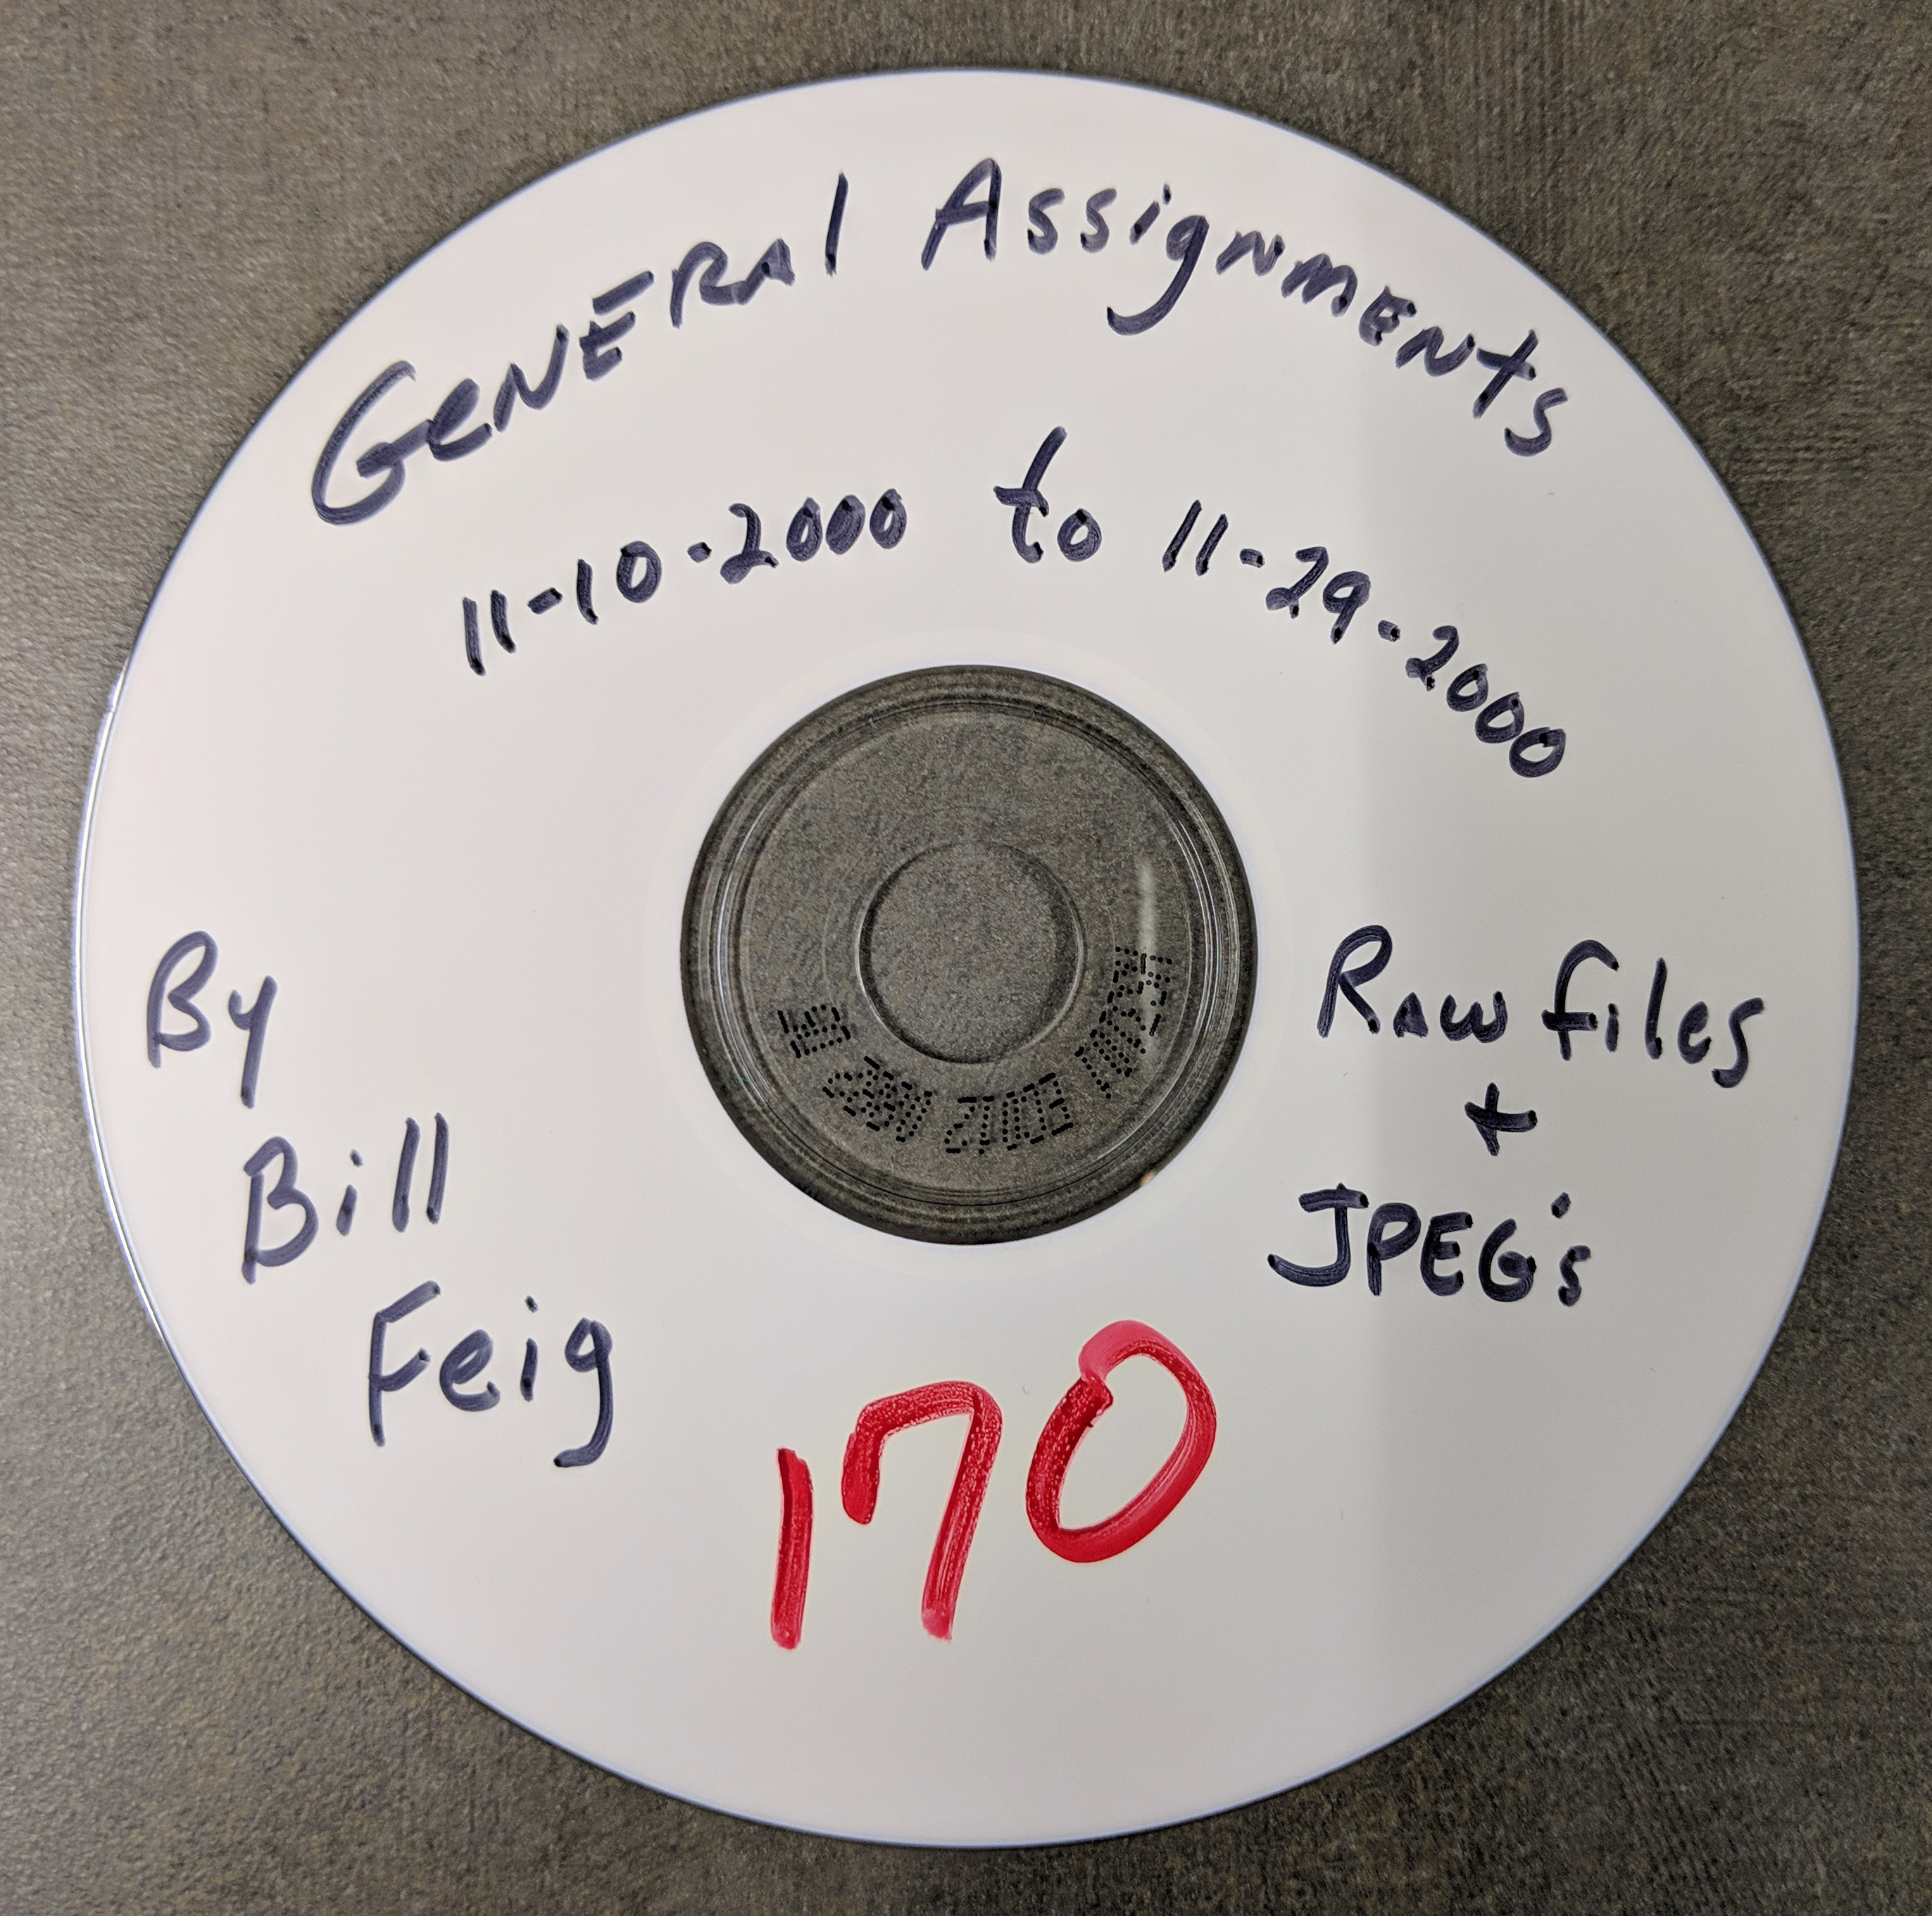 General Assignments
11-10-2000 to 11-29-2000
By
Bill
Feig
Raw files
+
JPEG's
170